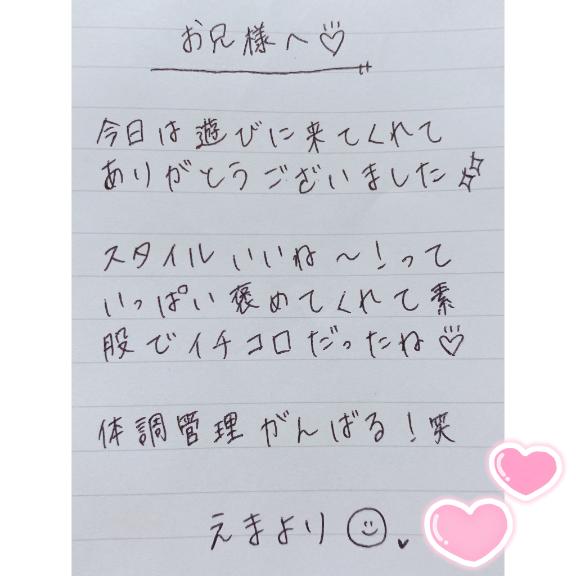 お兄様へ♡
今日は遊びに来てくれて
ありがとうございました
スタイルいいね〜！って
いっぱい褒めてくれて素
股でイチコロだったね♡
体調管理がんばる！笑
えまより